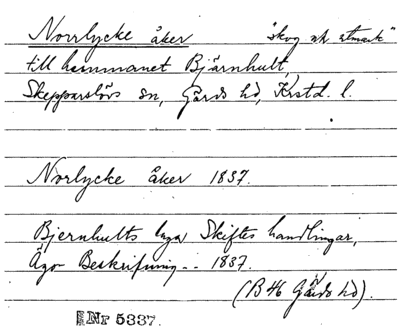 Norrlycke åker "skog utmark"
till hemmanet Bjärnhult,
Skepparslövs sn, Gärds hd, Krstd. l.
Norlycke åker 1837.
Bjernhults Laga Skiftes handlingar,
Ägo Beskrifning -- 1837.
(B 46 Gärds hd).
Nr 5337.